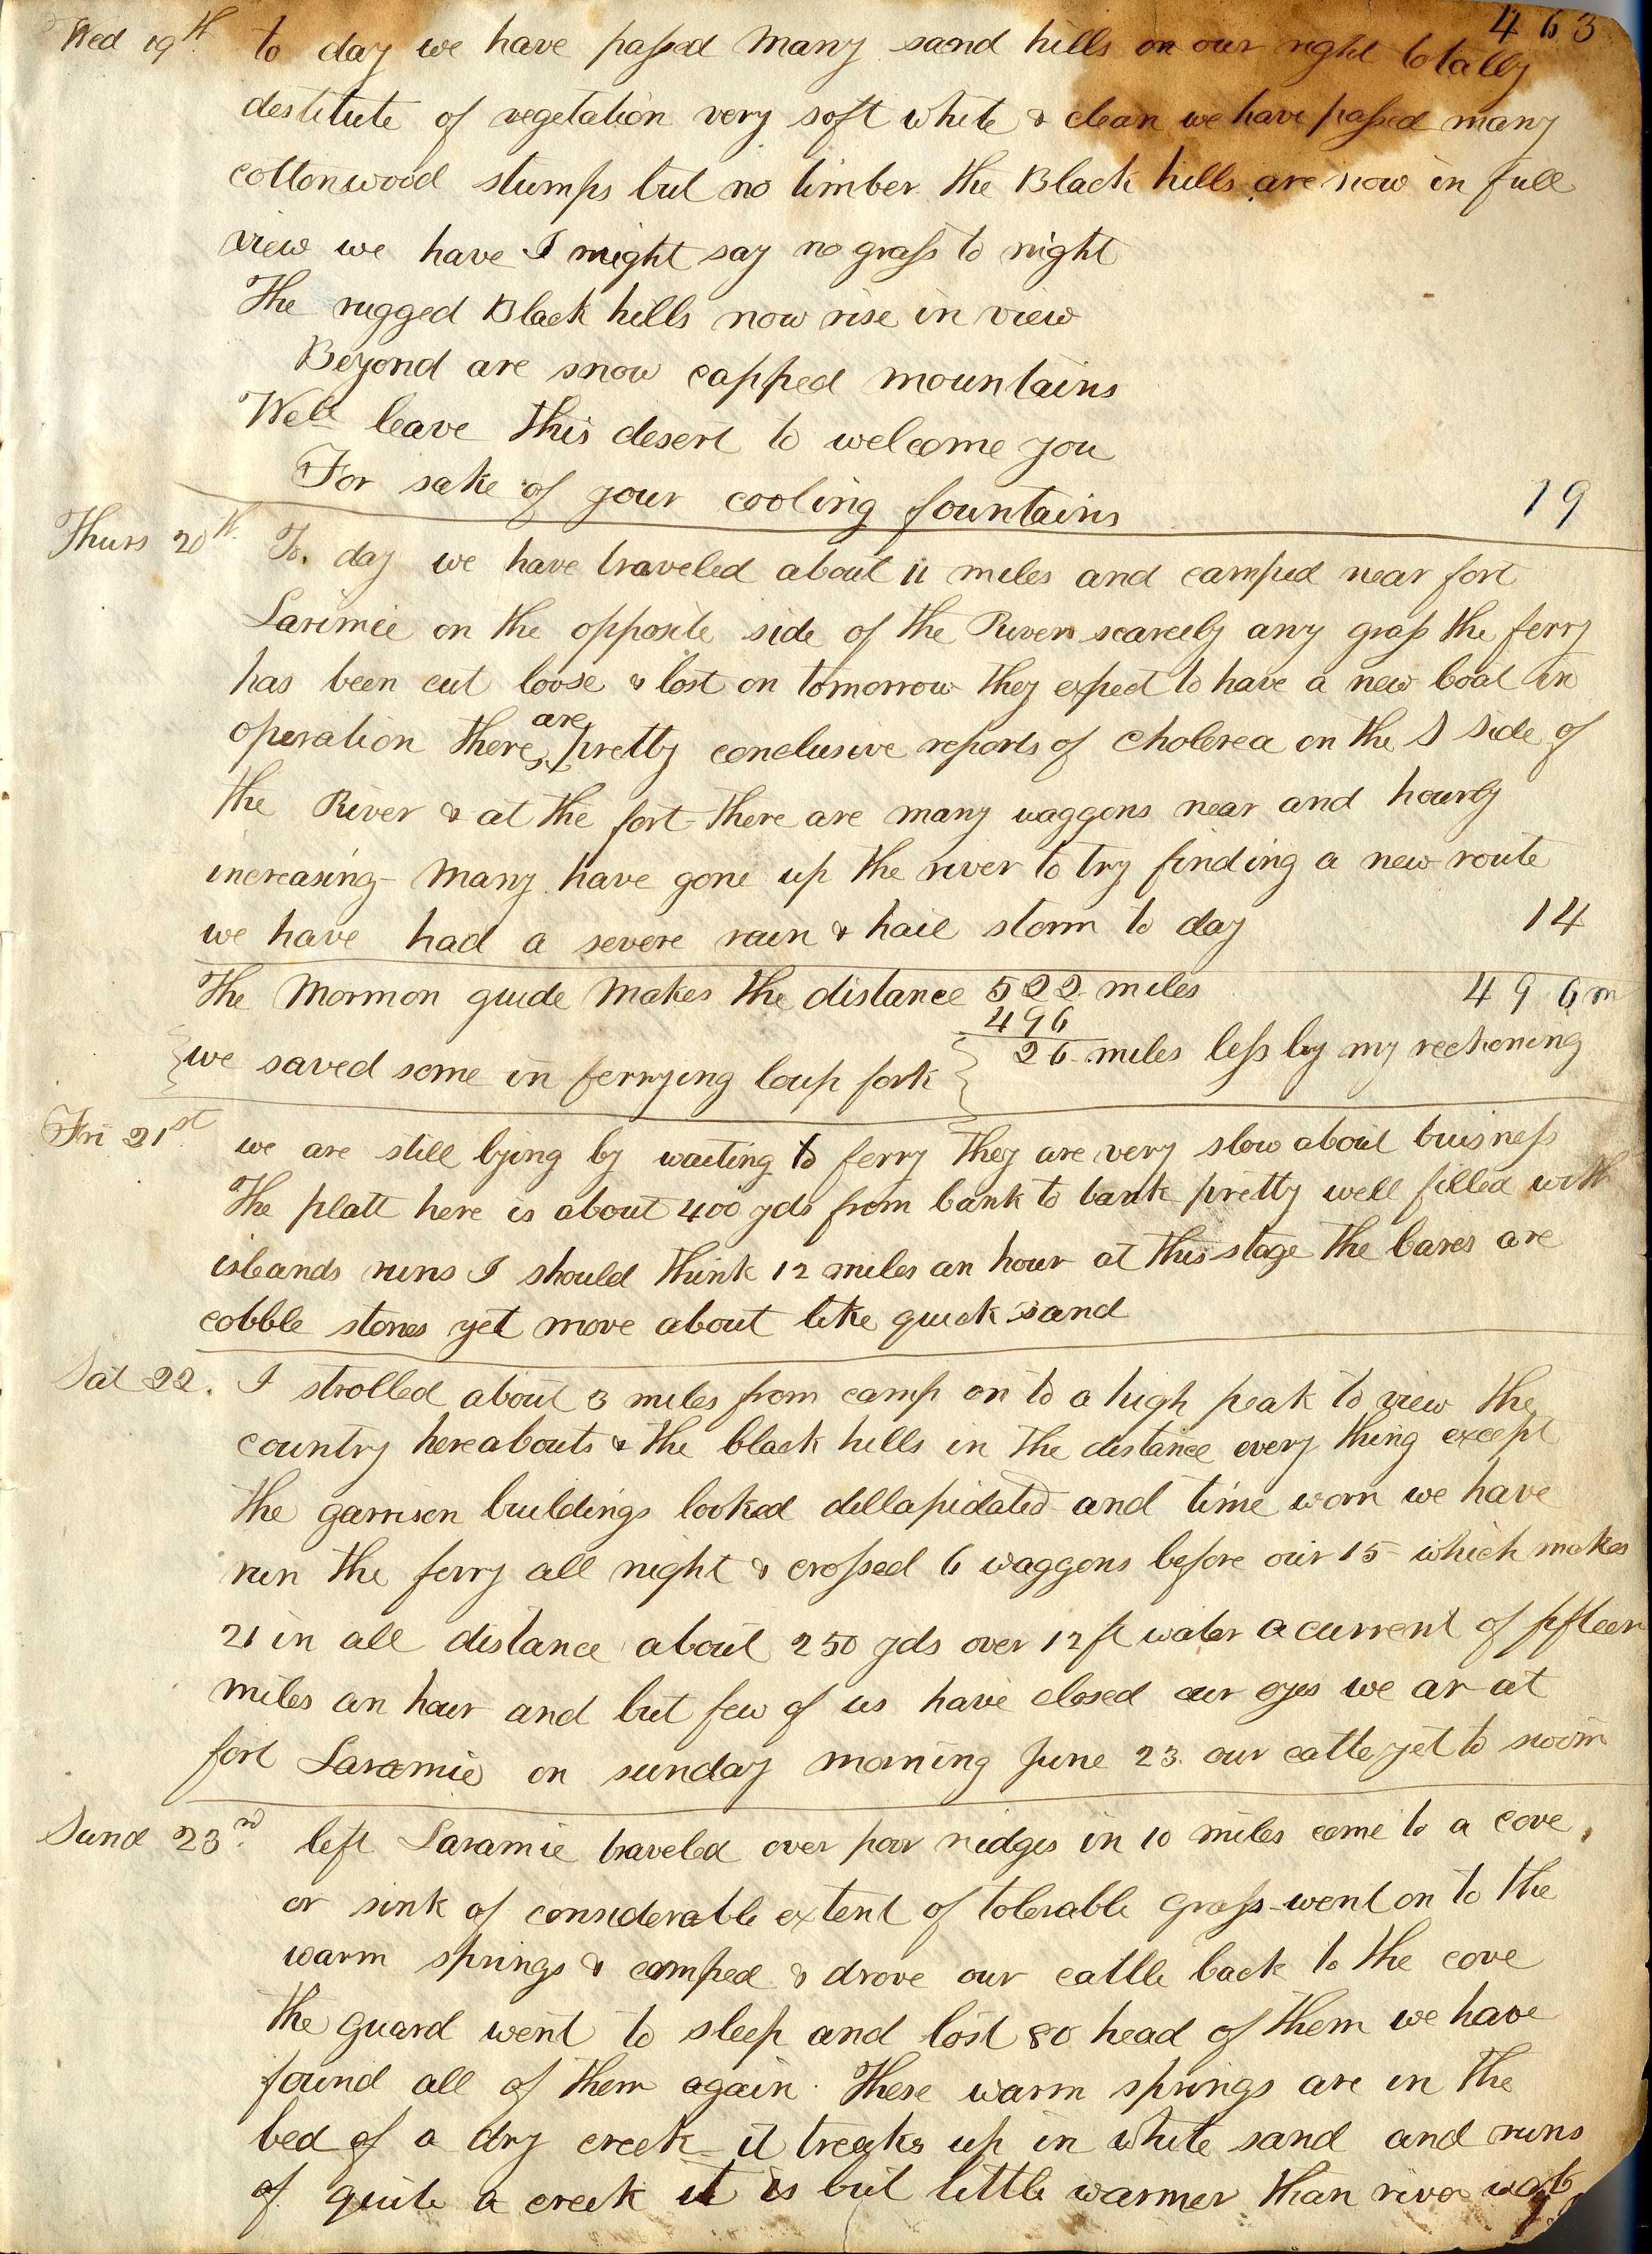 463
Wed 19th to day we have passed many sand hills on our right totally
destitute of vegetation very soft white & clean we have passed many
cottonwood stumps but no timber the Black hills are now in full
view we have I might say no grass to night
The rugged Black hills now rise in view
Beyond are snow capped mountains
Well leave this desert to welcome you
For sake of your cooling fountains 19
Thurs 20th To day we have traveled about 11 miles and camped near fort
Larimie on the opposite side of the River scarcely any grass the ferry
has been cut loose & lost on tomorrow they expect to have a new boat in
operation there are pretty conclusive reports of cholerea on the S side of
the River & at the fort there are many waggons near and hourly
increasing - many have gone up the river to try finding a new route
we have had a severe rain & hail storm to day 14
The Mormon guide makes the distance 522 miles 496m
496
we saved some in ferrying loup fork 26 miles less by my reckoning
Fri 21st we are still lying by waiting to ferry they are very slow about buisness
The platt here is about 400 yds from bank to bank pretty well filled with
islands runs I should think 12 miles an hour at this stage the bares are
cobble stones yet move about like quick sand
Sat 22. I strolled about 3 miles from camp on to a high peak to view the
country hereabouts & the black hills in the distance every thing except
the garrison buildings looked dillapidated and time worn we have
run the ferry all night & crossed 6 waggons before our 15 which makes
21 in all distance about 250 yds over 12 ft water a current of fifteen
miles an hour and but few of us have closed our eyes we ar at
fort Laramie on sunday morning June 23. our catte yet to swim
Sund 23rd left Laramie traveled over poor ridges in 10 miles come to a cove,
or sink of considerable extent of tolerable grass - went on to the
warm springs & camped & drove our cattle back to the cove
the guard went to sleep and lost 80 head of them we have
found all of them again. These warm springs are in the
bed of a dry creek - it breaks up in white sand and runs
of quite a creek it is but little warmer than river